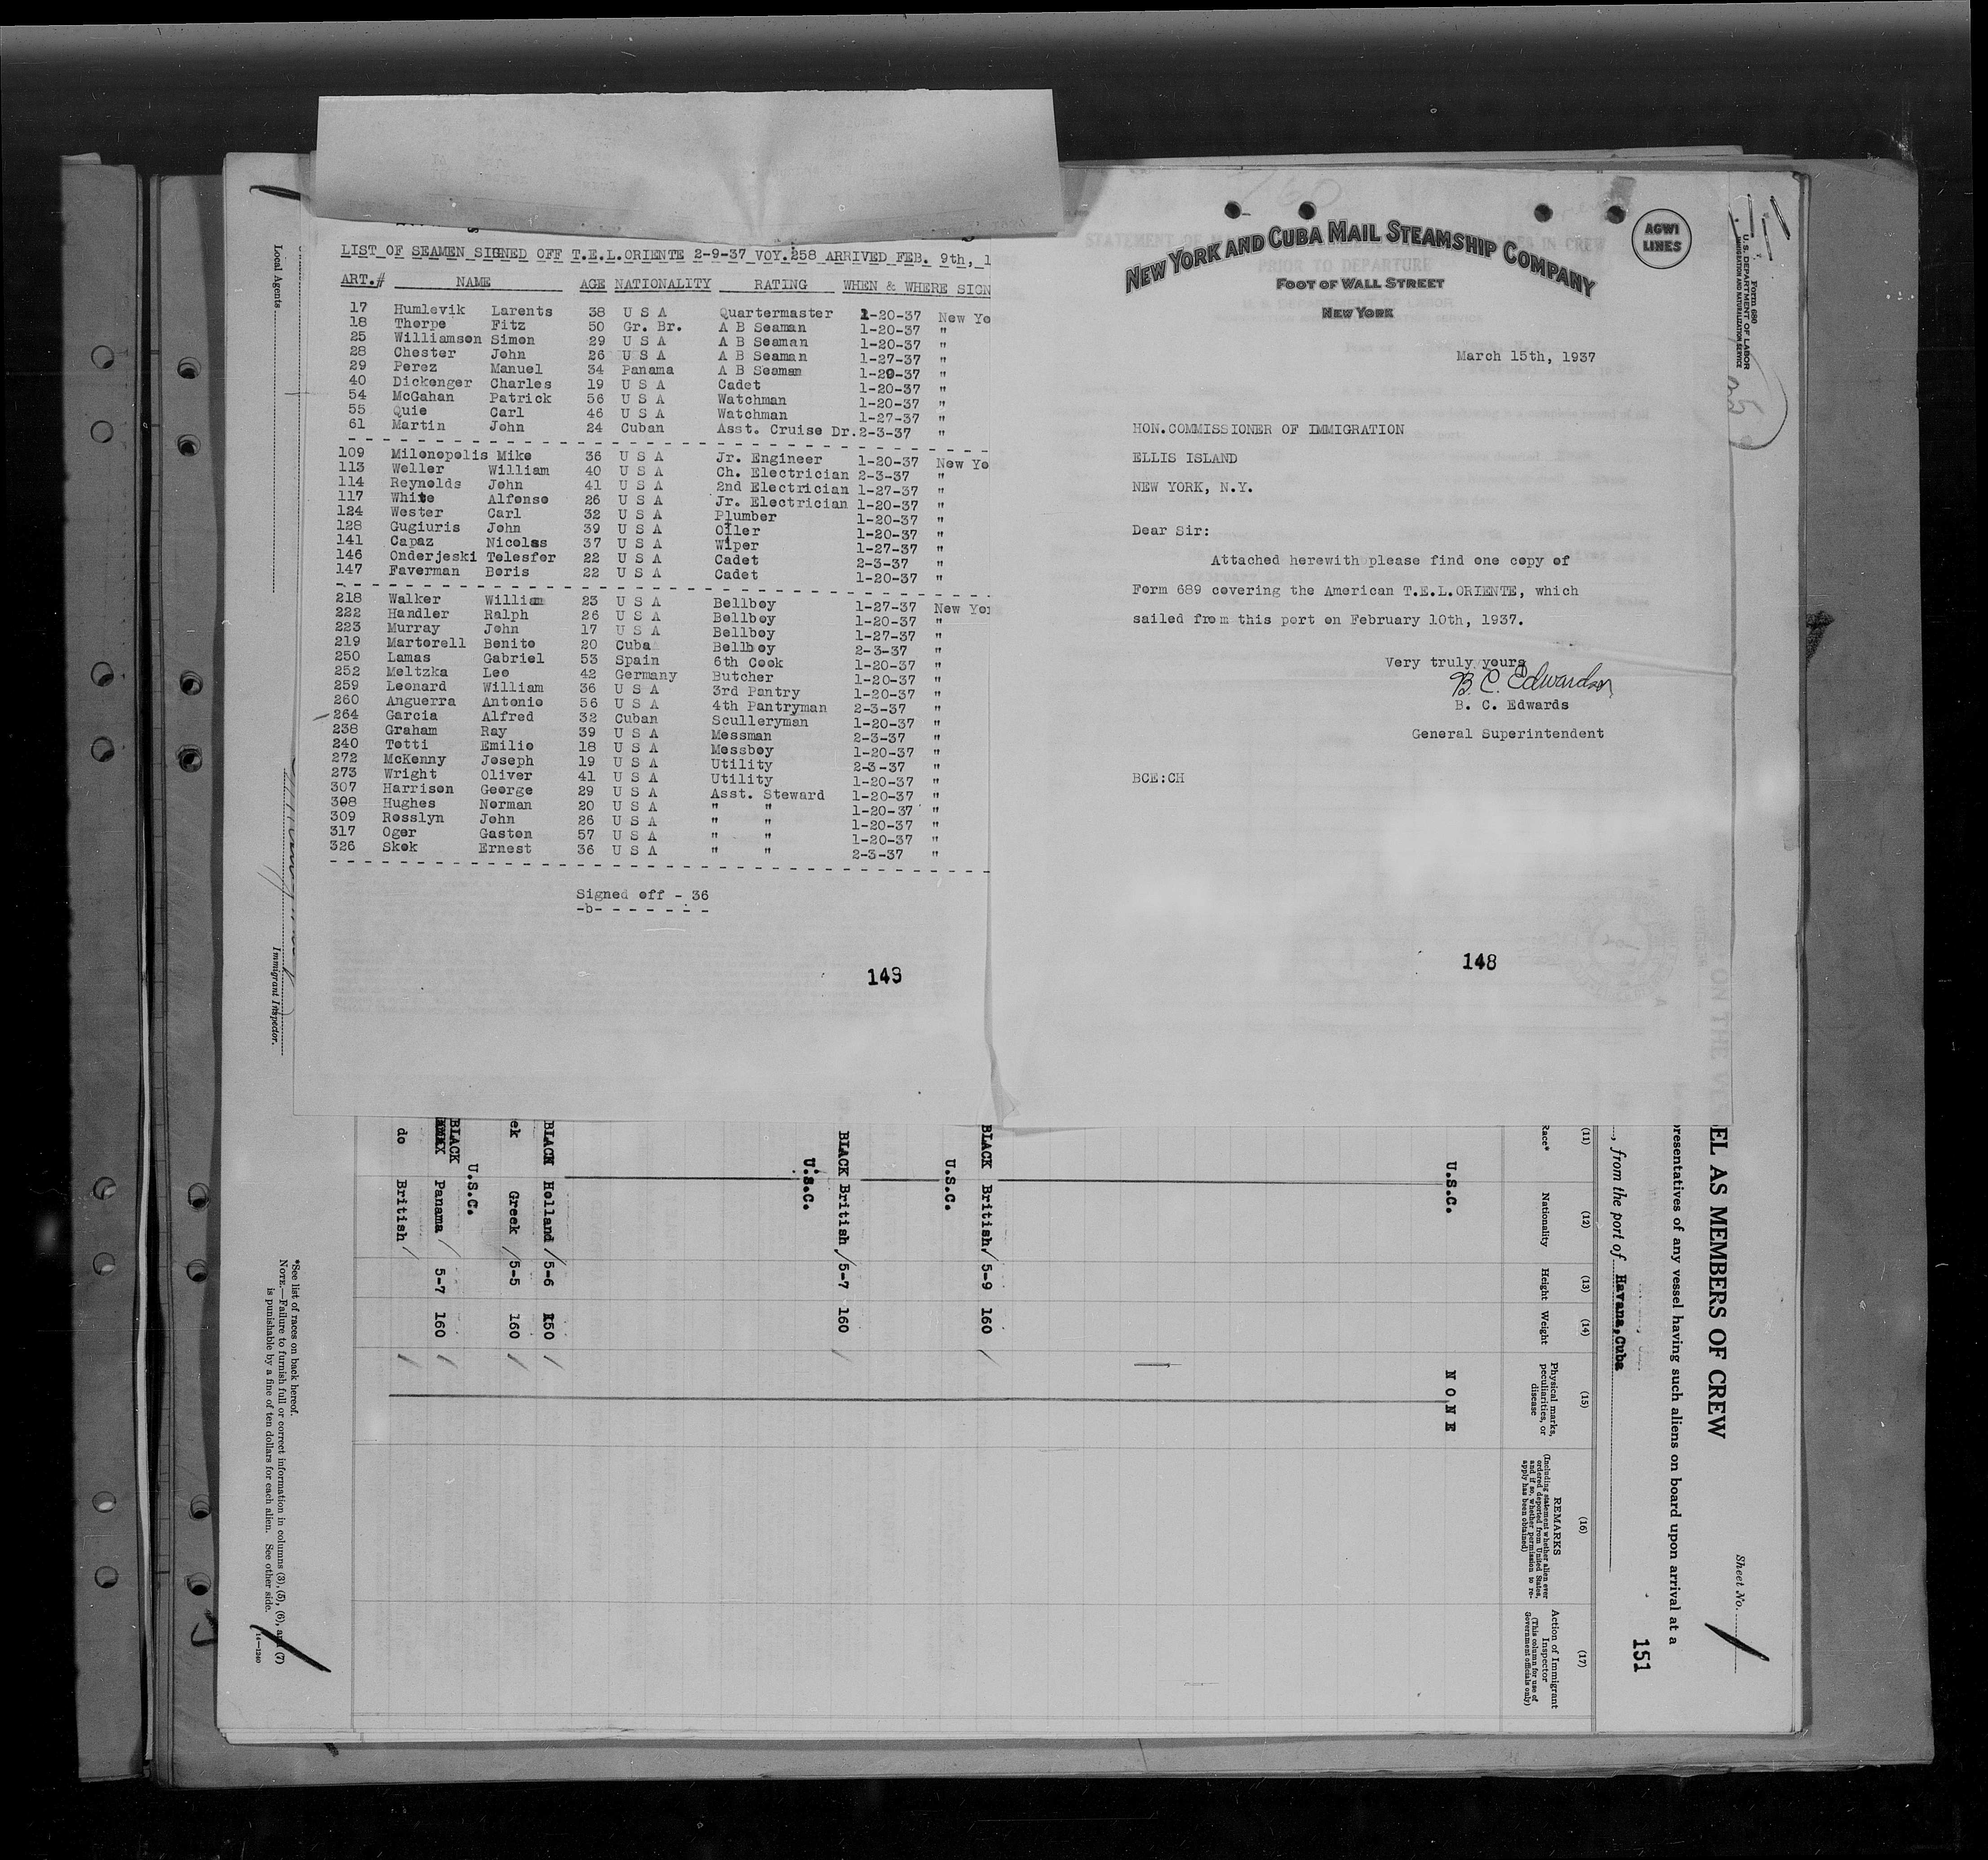 LIST OF SEAMEN SIGNED OFF T.E.L.ORIENTE 2-9-37 VOY.258 ARRIVED FEB. 9th, 1
ART.# NAME AGE NATIONALITY RATING WHEN & WHERE SIGN
17 Humlevik Larents 38 U S A Quartermaster 1-20-37 New Yo
18 Thorpe Fitz 50 Gr. Br. A B Seaman 1-20-37 "
25 Williamson Simon 29 U S A A B Seaman 1-20-37 "
28 Chester John 26 U S A A B Seaman 1-27-37 "
29 Perez Manuel 34 Panama A B Seaman 1-20-37 "
40 Dickenger Charles 19 U S A Cadet 1-20-37 "
54 McGahan Patrick 56 U S A Watchman 1-20-37 "
55 Quie Carl 46 U S A Watchman 1-27-37 "
61 Martin John 24 Cuban Asst. Cruise Dr. 2-3-37 "
109 Milonopolis Mike 36 U S A Jr. Engineer 1-20-37 New Yo
113 Weller William 40 U S A Ch. Electrician 2-3-37 "
114 Reynolds John 41 U S A 2nd Electrician 1-27-37 "
117 White Alfonso 26 U S A Jr. Electrician 1-20-37 "
124 Wester Carl 32 U S A Plumber 1-20-37 "
128 Gugiuris John 39 U S A Oiler 1-20-37 "
141 Capaz Nicolas 37 U S A Wiper 1-27-37 "
146 Onderjeski Telesfer 22 U S A Cadet 2-3-37 "
147 Faverman Boris 22 U S A Cadet 1-20-37 "
218 Walker William 23 U S A Bellboy 1-27-37 New Yor
222 Handler Ralph 26 U S A Bellboy 1-20-37 "
223 Murray John 17 U S A Bellboy 1-27-37 "
219 Martorell Benito 20 Cuba Bellboy 2-3-37 "
250 Lamas Gabriel 53 Spain 6th Cook 1-20-37 "
252 Meltzka Leo 42 Germany Butcher 1-20-37 "
259 Leonard William 36 U S A 3rd Pantry 1-20-37 "
260 Anguerra Antonio 56 U S A 4th Pantryman 2-3-37 "
264 Garcia Alfred 32 Cuban Sculleryman 1-20-37 "
238 Graham Ray 39 U S A Messman 2-3-37 "
240 Totti Emilio 18 U S A Messboy 1-20-37 "
272 McKenny Joseph 19 U S A Utility 2-3-37 "
273 Wright Oliver 41 U S A Utility 1-20-37 "
307 Harrison George 29 U S A Asst. Steward 1-20-37 "
308 Hughes Norman 20 U S A " " 1-20-37 "
309 Rosslyn John 26 U S A " " 1-20-37 "
317 Oger Gaston 57 U S A " " 1-20-37 "
326 Skok Ernest 36 U S A " " 2-3-37 "
Signed off - 36
-b- - - - - - -
149
AGWI LINES
NEW YORK AND CUBA MAIL STEAMSHIP COMPANY
FOOT OF WALL STREET
NEW YORK
March 15th, 1937
HON.COMMISSIONER OF IMMIGRATION
ELLIS ISLAND
NEW YORK, N.Y.
Dear Sir:
Attached herewith please find one copy of
Form 689 covering the American T.E.L.ORIENTE, which
sailed from this port on February 10th, 1937.
Very truly yours
B. C. Edwards
B. C. Edwards
General Superintendent
BCE:CH
148
Form 680
U. S. DEPARTMENT OF LABOR
IMMIGRATION AND NATURALIZATION SERVICE
Sheet No.
EL AS MEMBERS OF CREW
presentatives of any vessel having such aliens on board upon arrival at a
151
, from the port of Havana,Cuba
(11) (12) (13) (14) (15) (16) (17)
Race*
Nationality
Height
Weight
Physical marks, peculiarities, or disease
REMARKS
(Including statement whether alien ever ordered deported from United States, and if so, whether permission to reapply has been obtained)
Action of Immigrant Inspector
(This column for use of Government officials only)
U.S.C. NONE
BLACK British 5-9 160
U.S.C.
BLACK British 5-7 160
U.S.C.
BLACK Holland 5-6 150
ek Greek 5-5 160
U.S.C.
BLACK
Panama 5-7 160
do British
Local Agents
Immigrant Inspector.
*See list of races on back hereof.
NOTE.—Failure to furnish full or correct information in columns (3), (5), (6), and (7)
is punishable by a fine of ten dollars for each alien. See other side.
14—1240